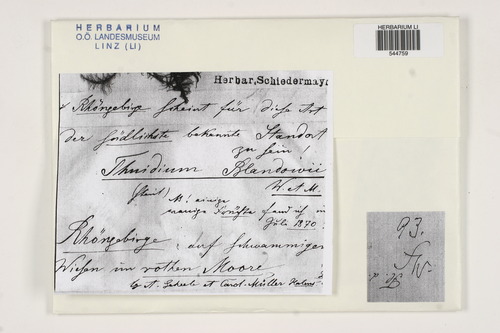 HERBARIUM
O.Ö. LANDESMUSEUM
LINZ (LI)
HERBARIUM LI
544759
Herbar, Schiedermay
Rhöngebirge scheint für diese Art
der südlichste bekannte Standort
zu sein!
Thuidium Blandowii
W. et M.
M! einige
wenige Früchte fand ich in
Juli 1870
Rhöngebirge: auf schwammigen
Wiesen im rothen Moore
A. Geheeb et Carol. Müller Halens.
93.